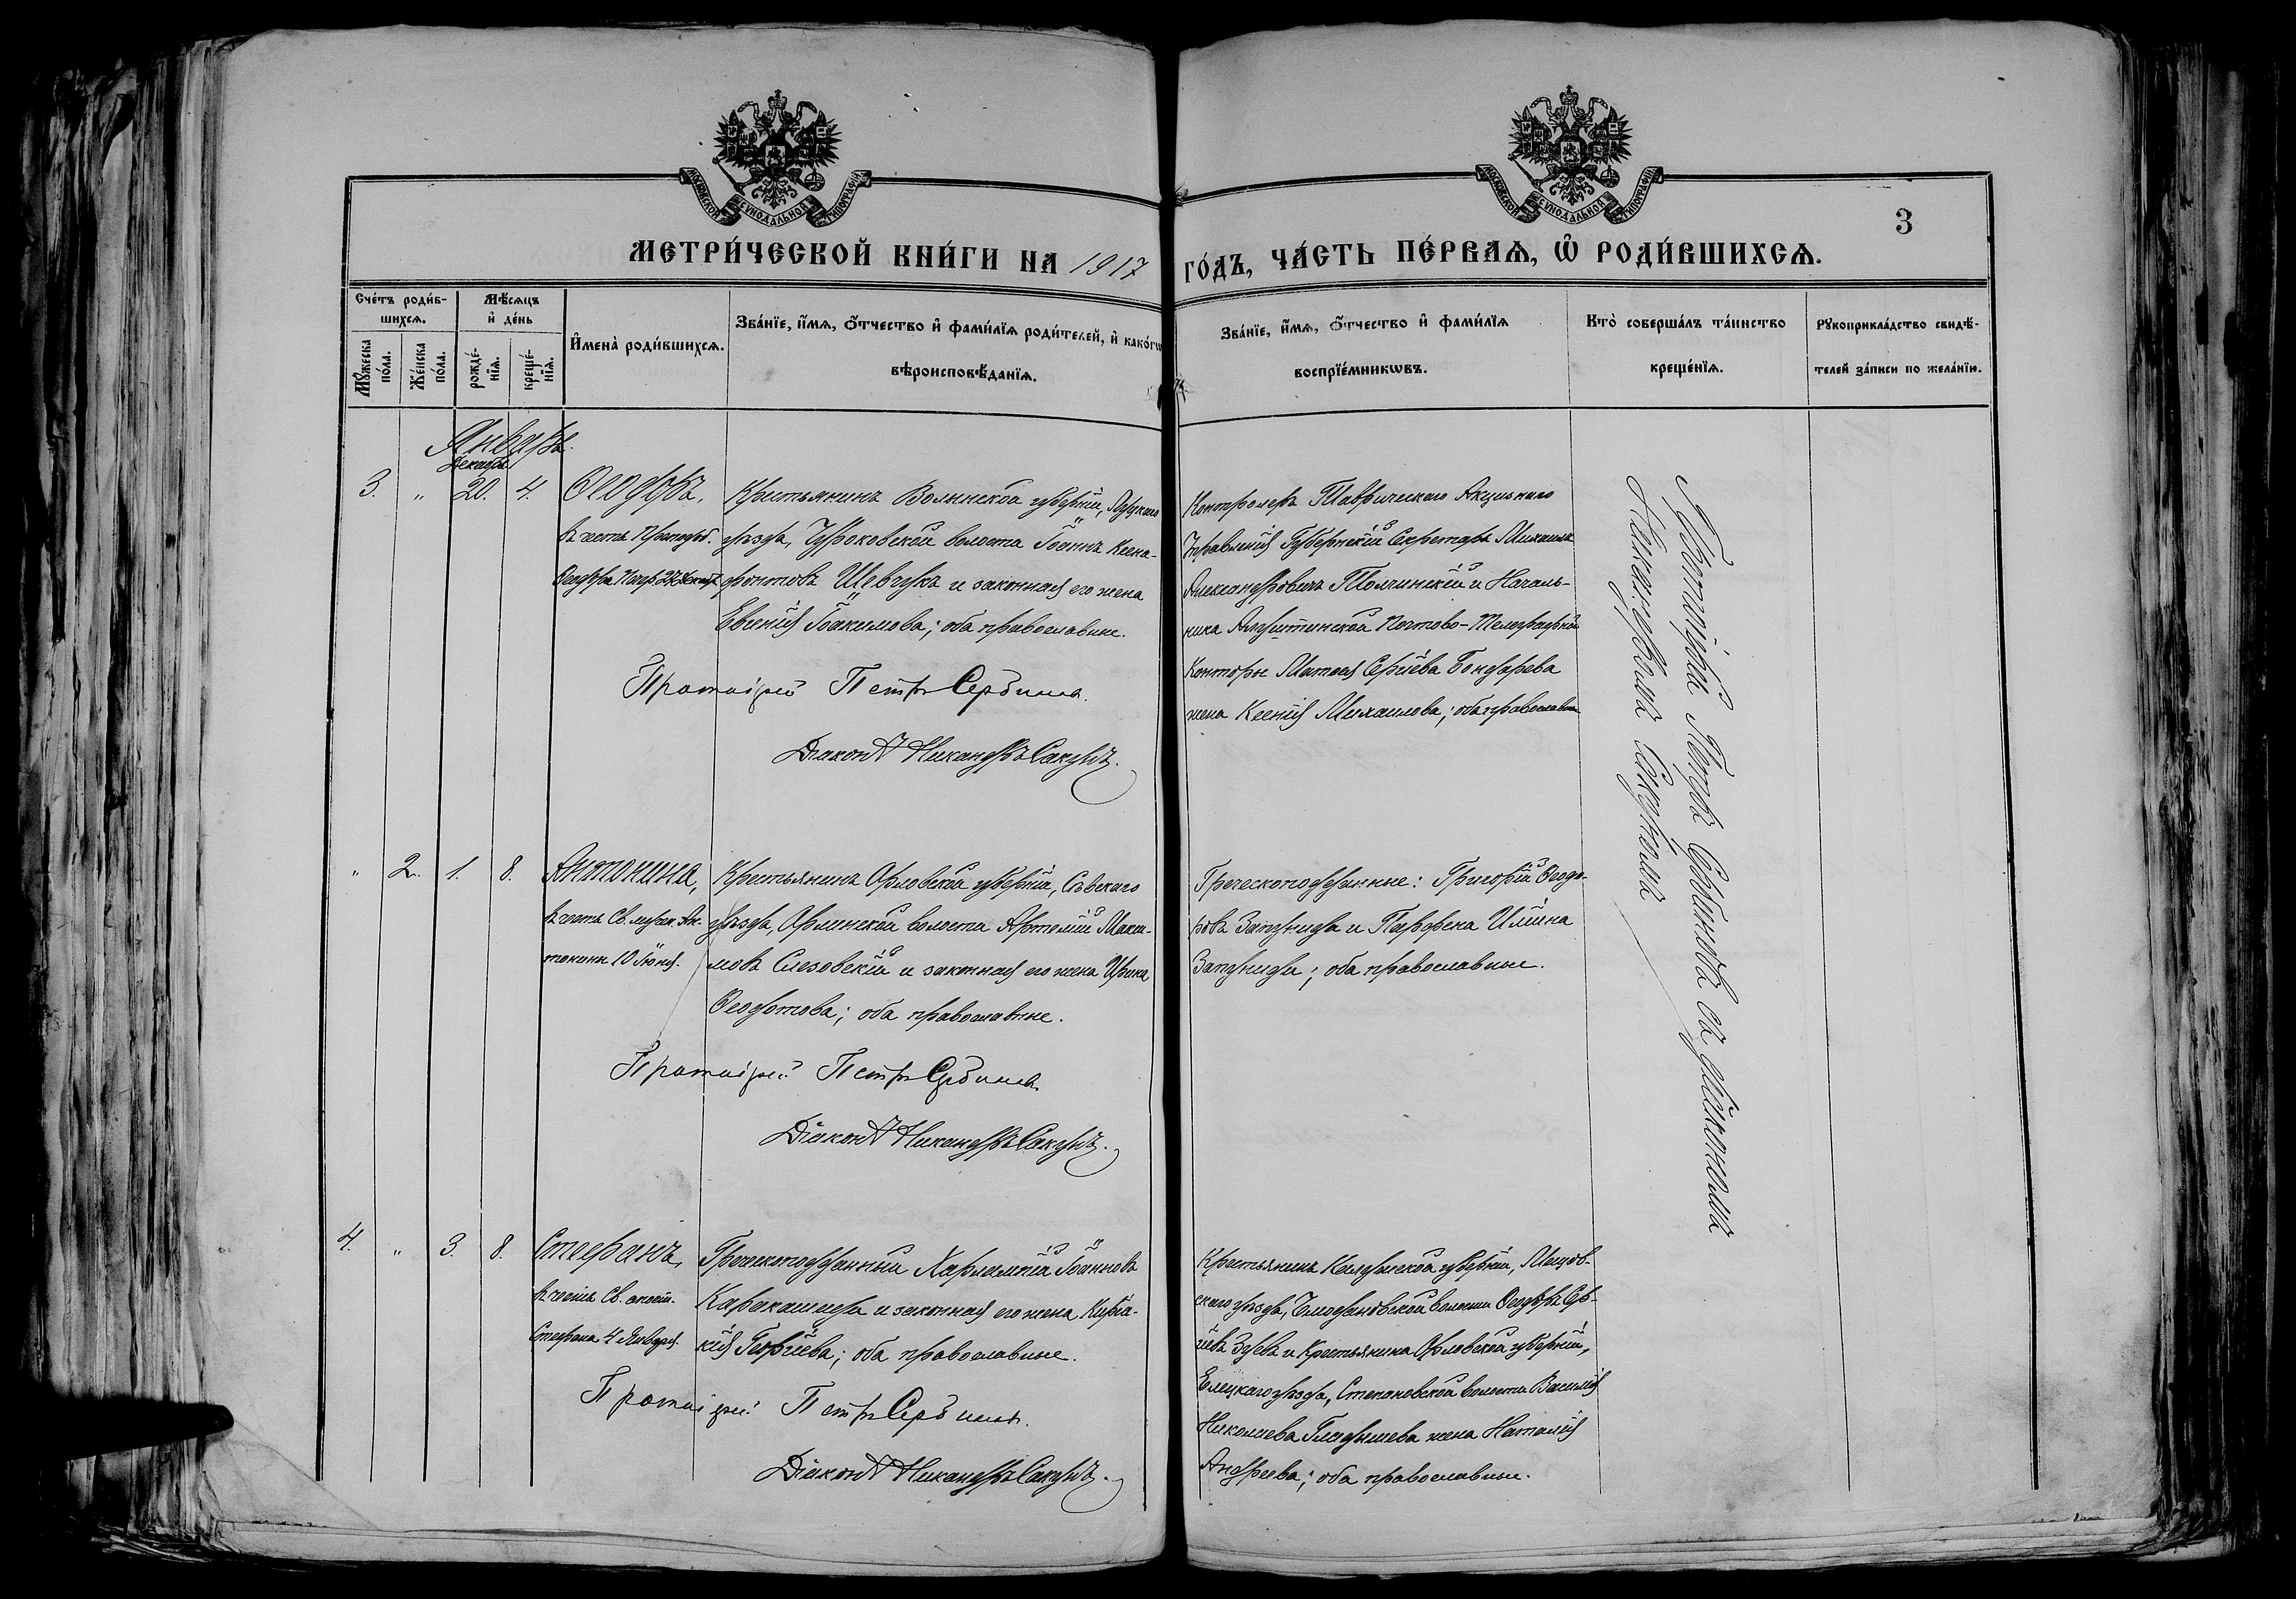 МОСКОВСКОЙ СУНОДАЛЬНОЙ ТИПОГРАФІИ
МОСКОВСКОЙ СУНОДАЛЬНОЙ ТИПОГРАФІИ
3
МЕТРИ́ЧЕСКОЙ КНИ́ГИ НА 1917 ГО́ДЪ, ЧА́СТЬ ПЕ́РВАѦ, Ѽ РОДИ́ВШИХСѦ.
Сче́тъ роди́в-
шихсѧ.
Мꙋ́жеска по́ла.
Же́нска по́ла.
Мѣ́сѧцъ и҆ де́нь
рожде́-нїѧ.
креще́-нїѧ.
И҆мена̀ роди́вшихсѧ.
Зва́нїе, и҆́мѧ, ѻ҆́тчество и҆ фами́лїѧ роди́телей, и҆ како́гѡ
вѣроисповѣ́данїѧ.
Зва́нїе, и҆́мѧ, ѻ҆́тчество и҆ фами́лїѧ
воспрїе́мникѡвъ.
Кто̀ соверша́лъ та́инство
креще́нїѧ.
Рꙋкоприкла́дство свидѣ́-
телей за́писи по жела́нїю.
Январь.
Декабрь
3. " 20. 4. Ѳеодоръ,
въ честь Преподоб.
Крестьянинъ Волынской губерніи, Луцкаго
уѣзда, волости Іоаннъ Ксено-
фонтовъ Шевчукъ и законная его жена
Евгенія Іоакимова; оба православные.
Протоіерей Петръ Сербиновъ.
Діаконъ Никандръ Сакунъ.
Контролеръ Таврическаго Акцизнаго
Управленія Губернскій Секретарь Михаилъ
Александровичъ Толчинскій и Началь-
ника Алуштинской Почтово-Телеграфной
Конторы Матвея Сергіева Бондарева
жена Ксенія Михаилова; оба православные
Протоіерей Петръ Сербиновъ съ діакономъ
Никандромъ Сакуномъ
" 2. 1. 8. Антонина,
въ честь Св. мучен. Ан-
тонины 10 Іюня.
Крестьянинъ Орловской губерніи, Сѣвскаго
уѣзда, волости Артемій Макси-
мовъ Слезовскій и законная его жена Ирина
Ѳеодотова; оба православные.
Протоіерей Петръ Сербиновъ.
Діаконъ Никандръ Сакунъ.
Греческоподданные: Григорій Ѳеодо-
ровъ и Ильина
оба православные.
4. " 3. 8. Стефанъ,
въ честь Св. апост.
Стефана 4 Января.
Греческоподданный Харлампій Іоанновъ
Каракашиди и законная его жена Киріа-
кія Георгіева; оба православные.
Протоіерей Петръ Сербиновъ.
Діаконъ Никандръ Сакунъ.
Крестьянинъ Калужской губерніи, Мещов-
скаго уѣзда, волости Ѳеодоръ Сер-
гіевъ Зуевъ и Крестьянина Орловской губерніи,
Елецкаго уѣзда, Степановской волости Василія
Николаева Гладышева жена Наталія
Андреева; оба православные.